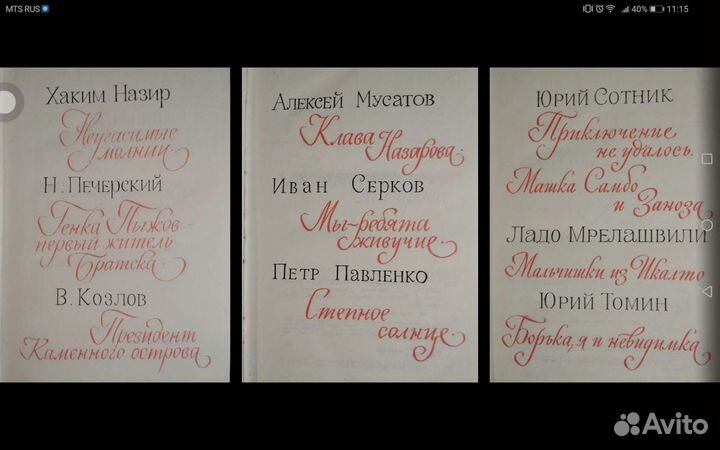 MTS RUS
40% 11:15
Хаким Назир
Неугасимые
молнии.
Н. Печерский
Генка Пыжов -
первый житель
Братска.
В. Козлов
Президент
Каменного острова
Алексей Мусатов
Клава
Назарова.
Иван Серков
Мы-ребята
живучие.
Петр Павленко
Степное
солнце.
Юрий Сотник
Приключение
не удалось.
Машка Самбо
и Заноза
Ладо Мрелашвили
Мальчишки из Икалто
Юрий Томин
Борька, я и невидимка
Avito